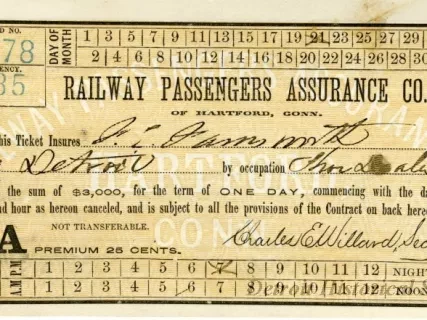 D NO. DAY OF MONTH 1 3 5 7 9 11 13 15 17 19 21 23 25 27 29
78 2 4 6 8 10 12 14 16 18 20 22 24 26 28 30
ENCY.
35 RAILWAY PASSENGERS ASSURANCE CO.
OF HARTFORD, CONN.
his Ticket Insures F. E. Farnsworth
Detroit by occupation
the sum of $3,000, for the term of ONE DAY, commencing with the da
nd hour as hereon canceled, and is subject to all the provisions of the Contract on back here
NOT TRANSFERABLE.
A PREMIUM 25 CENTS. Charles E Willard, Sec
A M 1 2 3 4 5 6 7 8 9 10 11 12 NIGH
P M 1 2 3 4 5 6 7 8 9 10 11 12 NOON
Detroit Historical